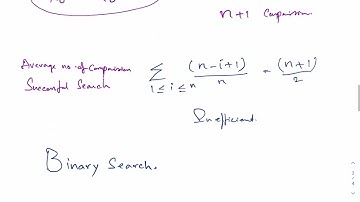 n+1 Comparison
Average no. of Comparison
Successful Search
∑ 1≤i≤n (n-i+1)/n = (n+1)/2
Inefficient.
Binary Search.